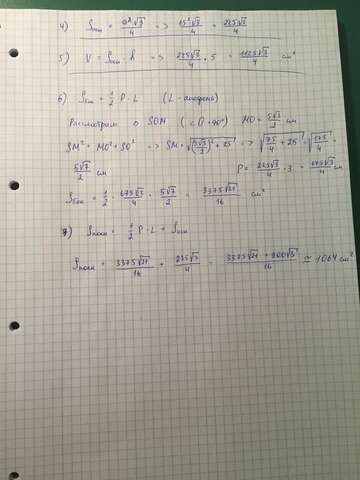 4) Sосн = a²√3/4 => 15²√3/4 = 225√3/4
5) V = Sосн · h => 225√3/4 · 5 = 1125√3/4 см³
6) Sбок = 1/2 P · L (L - апофема)
Рассмотрим △ SOM (∠O = 90°) MO = 5√3/2 см
SM² = MO² + SO² => SM = √((5√3/2)² + 25) => √(75/4 + 25) = √(175/4) =
5√7/2 см P = 225√3/4 · 3 = 675√3/4 см
Sбок = 1/2 · 675√3/4 · 5√7/2 = 3375√21/16 см²
7) Sполн = 1/2 P · L + Sосн
Sполн = 3375√21/16 + 225√3/4 = 3375√21 + 900√3/16 ≈ 1064 см²